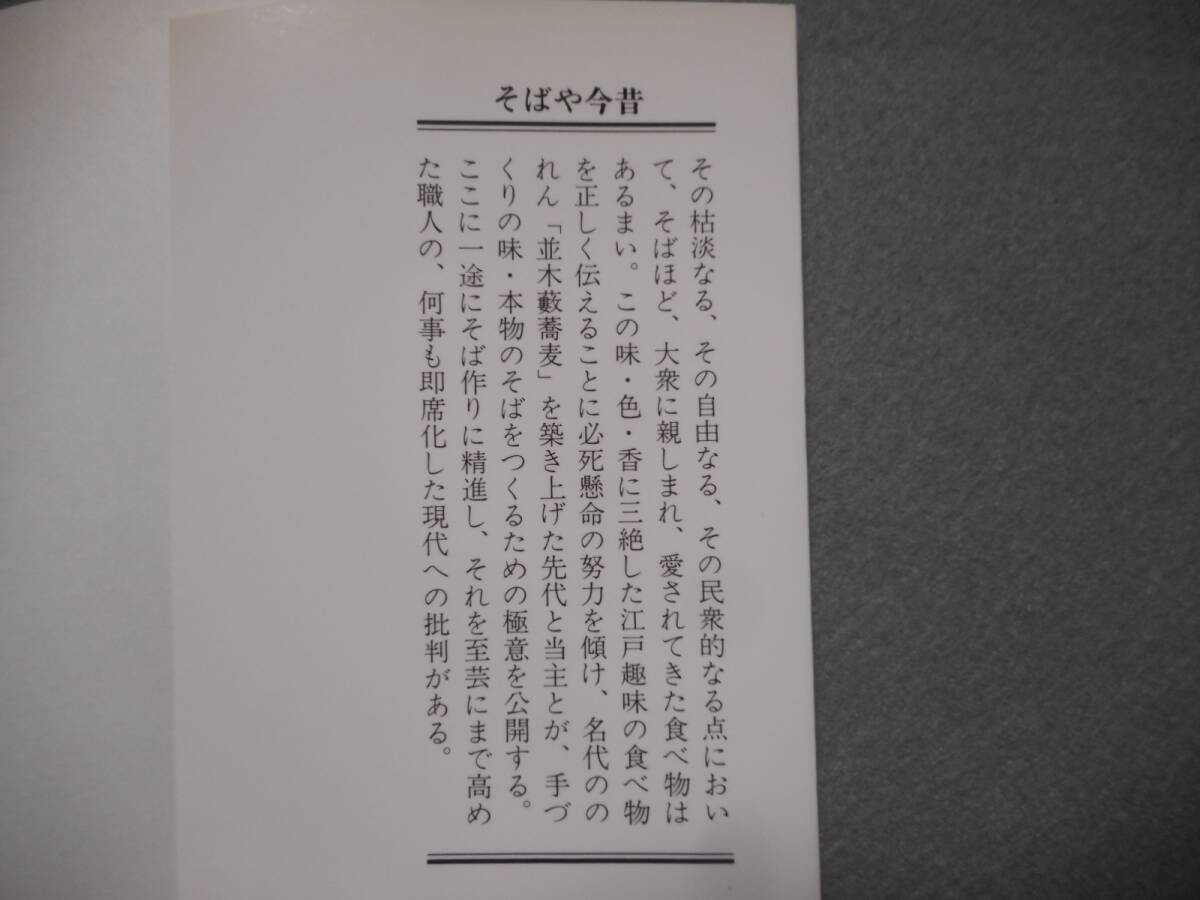 そばや今昔
その枯淡なる、その自由なる、その民衆的なる点におい
て、そばほど、大衆に親しまれ、愛されてきた食べ物は
あるまい。この味・色・香に三絶した江戸趣味の食べ物
を正しく伝えることに必死懸命の努力を傾け、名代のの
れん「並木藪蕎麦」を築き上げた先代と当主とが、手づ
くりの味・本物のそばをつくるための極意を公開する。
ここに一途にそば作りに精進し、それを至芸にまで高め
た職人の、何事も即席化した現代への批判がある。